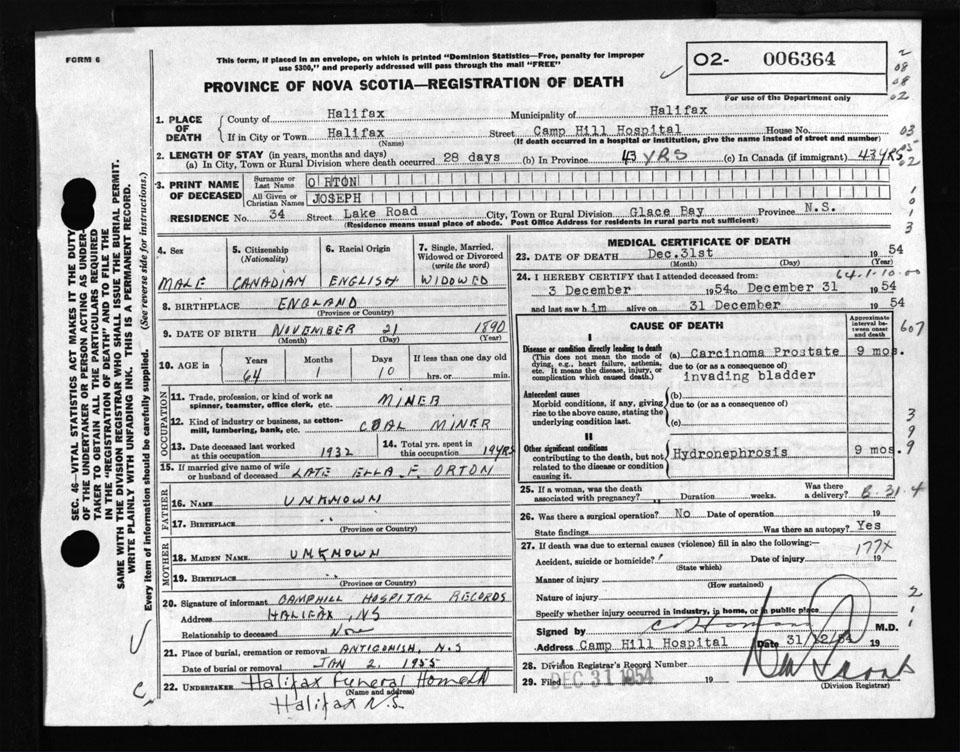 FORM 6
This form, if placed in an envelope, on which is printed "Dominion Statistics—Free, penalty for improper
use $300," and properly addressed will pass through the mail "FREE"
PROVINCE OF NOVA SCOTIA—REGISTRATION OF DEATH
02- 006364
For use of the Department only
2
08
08
02
03
05
02
1
0
1
3
SEC. 46—VITAL STATISTICS ACT MAKES IT THE DUTY
OF THE UNDERTAKER OR PERSON ACTING AS UNDER-
TAKER TO OBTAIN ALL THE PARTICULARS REQUIRED
IN THE "REGISTRATION OF DEATH" AND TO FILE THE
SAME WITH THE DIVISION REGISTRAR WHO SHALL ISSUE THE BURIAL PERMIT.
WRITE PLAINLY WITH UNFADING INK. THIS IS A PERMANENT RECORD.
Every item of information should be carefully supplied. (See reverse side for instructions.)
1. PLACE OF DEATH
County of Halifax Municipality of Halifax
If in City or Town Halifax Street Camp Hill Hospital House No.
(Name) (If death occurred in a hospital or institution, give the name instead of street and number)
2. LENGTH OF STAY (in years, months and days)
(a) In City, Town or Rural Division where death occurred 28 days (b) In Province 43 YRS (c) In Canada (if immigrant) 43 YRS
3. PRINT NAME OF DECEASED
Surname or Last Name ORTON
All Given or Christian Names JOSEPH
RESIDENCE No. 34 Street Lake Road City, Town or Rural Division Glace Bay Province N.S.
(Residence means usual place of abode. Post Office Address for residents in rural parts not sufficient)
4. Sex MALE
5. Citizenship (Nationality) CANADIAN
6. Racial Origin ENGLISH
7. Single, Married, Widowed or Divorced (write the word) WIDOWED
8. BIRTHPLACE ENGLAND
(Province or Country)
9. DATE OF BIRTH NOVEMBER 21 1890
(Month) (Day) (Year)
10. AGE in Years 64 Months 1 Days 10 If less than one day old hrs. or min.
OCCUPATION
11. Trade, profession, or kind of work as spinner, teamster, office clerk, etc. MINER
12. Kind of industry or business, as cotton-mill, lumbering, bank, etc. COAL MINER
13. Date deceased last worked at this occupation 1932
14. Total yrs. spent in this occupation 19 YRS
15. If married give name of wife or husband of deceased LATE ELLA F. ORTON
FATHER
16. NAME UNKNOWN
17. BIRTHPLACE "
(Province or Country)
MOTHER
18. MAIDEN NAME UNKNOWN
19. BIRTHPLACE "
(Province or Country)
20. Signature of informant CAMPHILL HOSPITAL RECORDS
Address HALIFAX, NS
Relationship to deceased None
21. Place of burial, cremation or removal ANTIGONISH, N.S
Date of burial or removal JAN 2. 1955
22. UNDERTAKER Halifax Funeral Home
(Name and address)
Halifax N.S
MEDICAL CERTIFICATE OF DEATH
23. DATE OF DEATH Dec. 31st 19 54
(Month) (Day)
64-1-10-00
24. I HEREBY CERTIFY that I attended deceased from:
3 December 1954 to December 31 19 54
and last saw him alive on 31 December 19 54
CAUSE OF DEATH
Approximate interval between onset and death
607
I
Disease or condition directly leading to death
(This does not mean the mode of dying, e.g., heart failure, asthenia, etc. It means the disease, injury, or complication which caused death.)
(a) Carcinoma Prostate 9 mos.
due to (or as a consequence of)
invading bladder
Antecedent causes
Morbid conditions, if any, giving rise to the above cause, stating the underlying condition last.
(b)
due to (or as a consequence of)
(c)
II
Other significant conditions
contributing to the death, but not related to the disease or condition causing it.
Hydronephrosis 9 mos.
3
9
9
9
25. If a woman, was the death associated with pregnancy? Duration weeks. Was there a delivery?
B-31-4
26. Was there a surgical operation? No Date of operation 19
State findings Was there an autopsy? Yes
27. If death was due to external causes (violence) fill in also the following:— 177X
Accident, suicide or homicide? Date of injury 19
(State which)
Manner of injury
(How sustained)
Nature of injury
Specify whether injury occurred in industry, in home, or in public place
2
1
1
Signed by M.D.
Address Camp Hill Hospital Date 31/12/54 19
28. Division Registrar's Record Number
29. Filed DEC 31 1954 19
(Division Registrar)